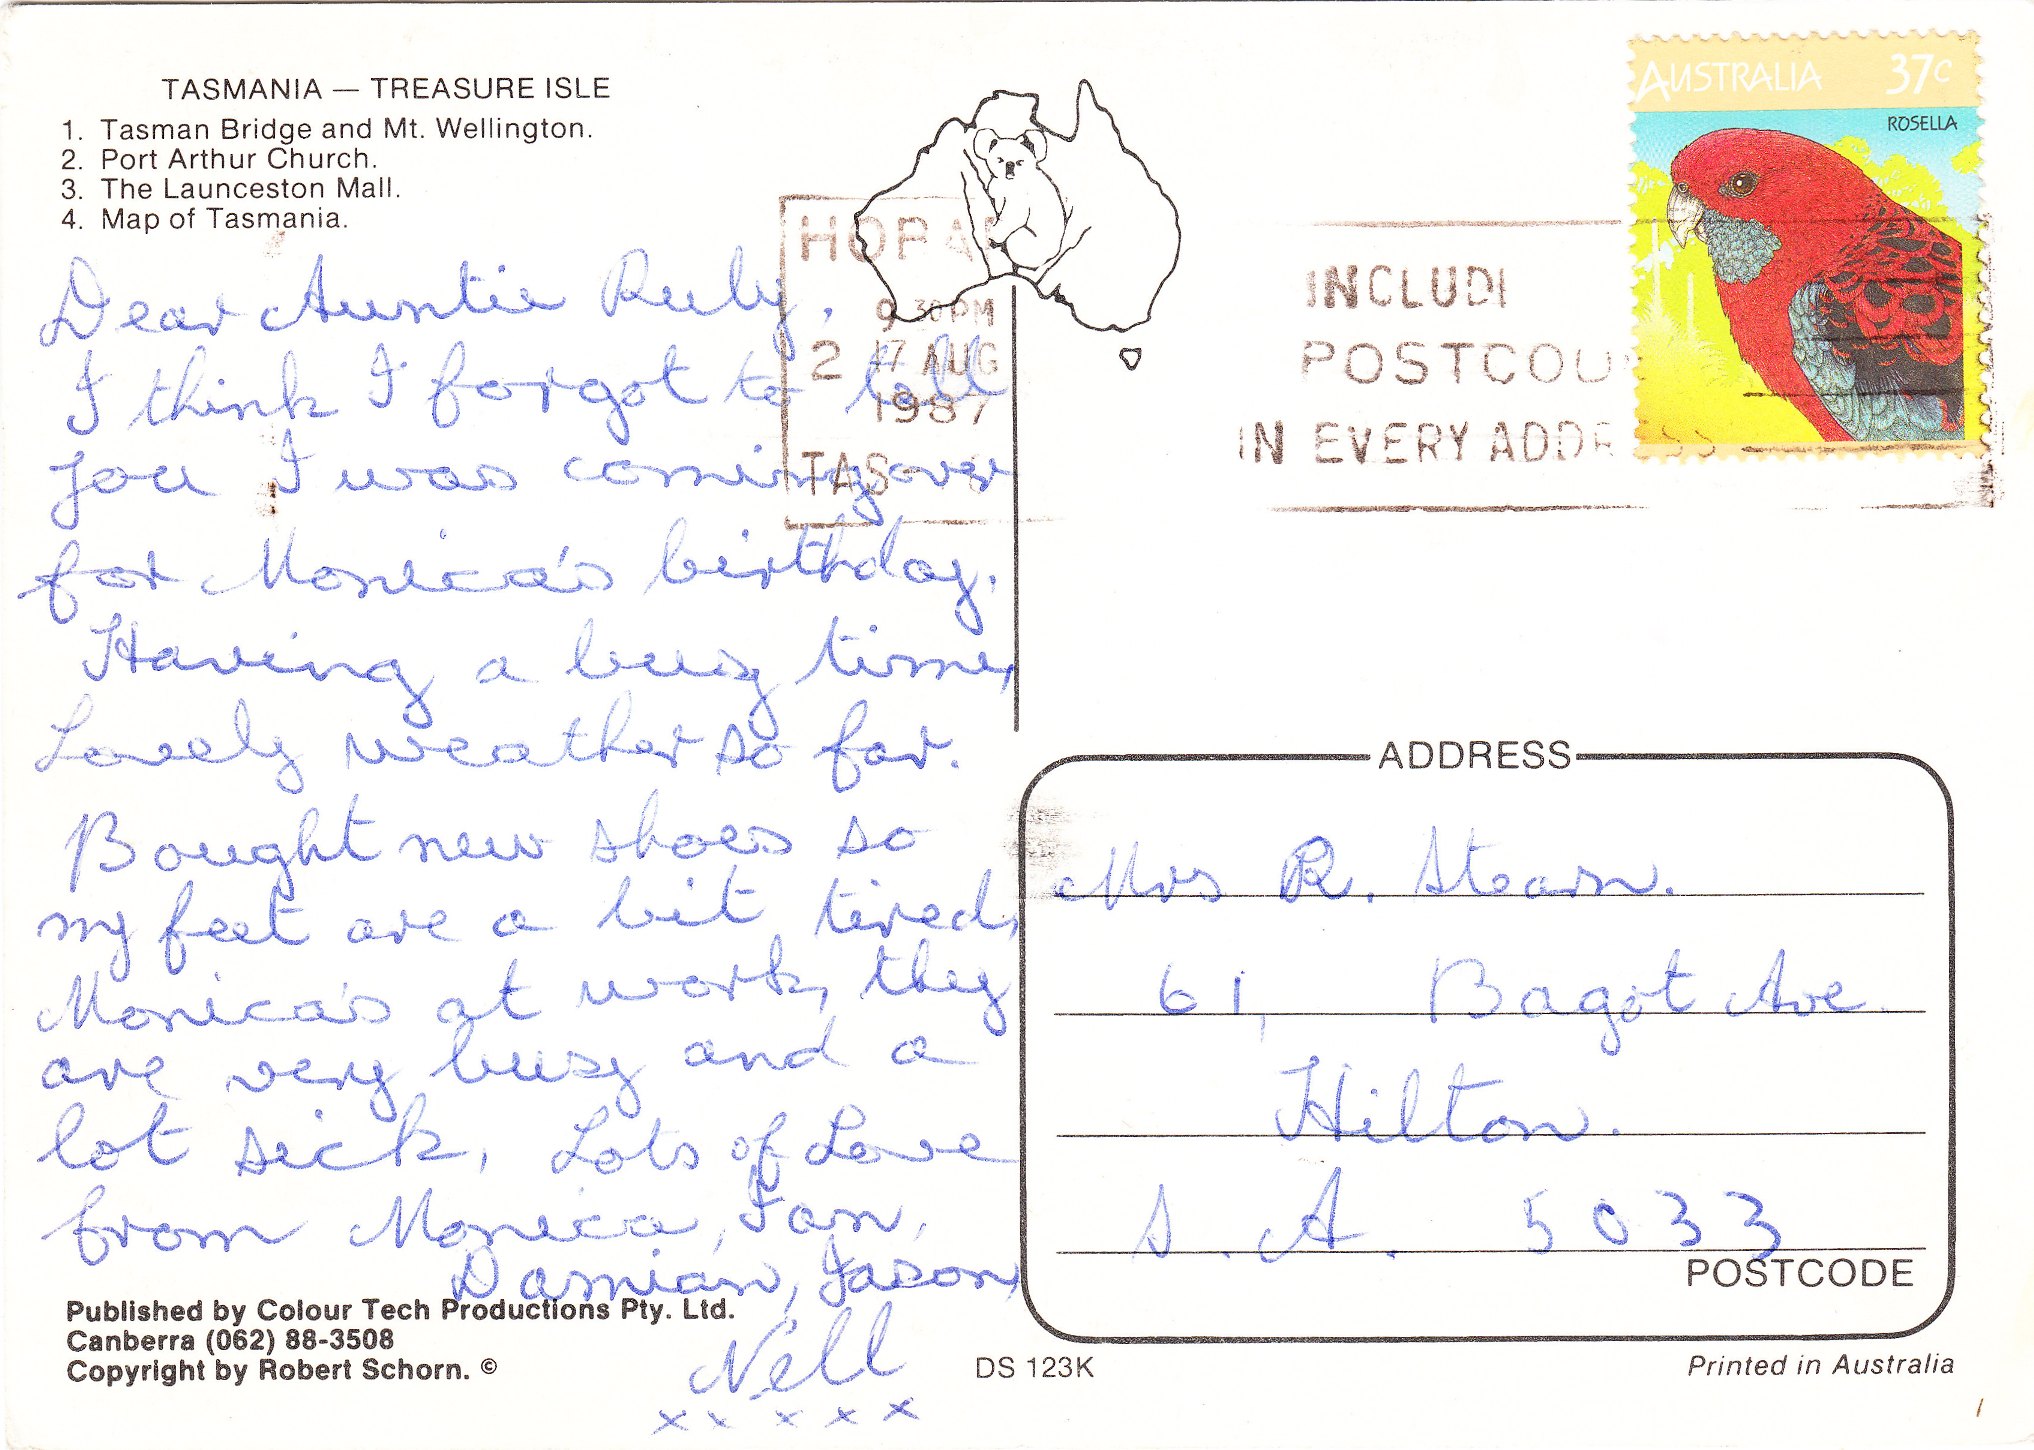 TASMANIA — TREASURE ISLE
1. Tasman Bridge and Mt. Wellington.
2. Port Arthur Church.
3. The Launceston Mall.
4. Map of Tasmania.
Dear Auntie Ruby,
I think I forgot to tell
you I was coming over
for Monica's birthday.
Having a busy time,
Lovely weather so far.
Bought new shoes so
my feet are a bit tired,
Monica's at work, they
are very busy and a
lot sick, Lots of Love
from Monica, Ian,
Damian, Jason,
Nell
x x x x x
Published by Colour Tech Productions Pty. Ltd.
Canberra (062) 88-3508
Copyright by Robert Schorn. ©
DS 123K
HOBA
9 30 PM
2 17 AUG
1987
TAS
INCLUD
POSTCOD
IN EVERY ADDRESS
AUSTRALIA 37c
ROSELLA
ADDRESS
Mrs R. Stearn.
61, Bagot Ave.
Hilton.
S. A. 5033
POSTCODE
Printed in Australia